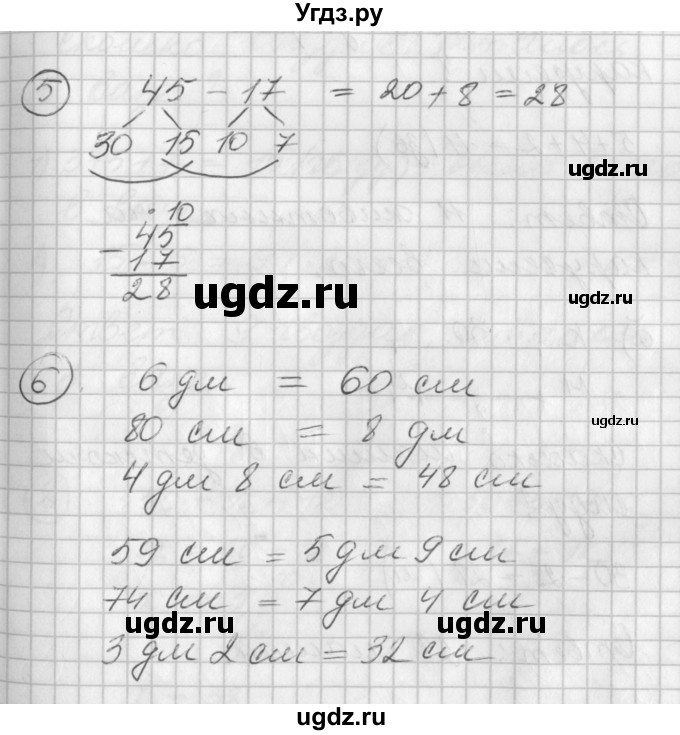 Угдз.ру
5 45 - 17 = 20 + 8 = 28
30 15 10 7
. 10
- 45
17
28
ugdz.ru
ugdz.ru
6. 6 дм = 60 см
80 см = 8 дм
ugdz.ru
4 дм 8 см = 48 см
59 см = 5 дм 9 см
74 см = 7 дм 4 см
ugdz.ru
ugdz.ru
3 дм 2 см = 32 см
ugdz.ru